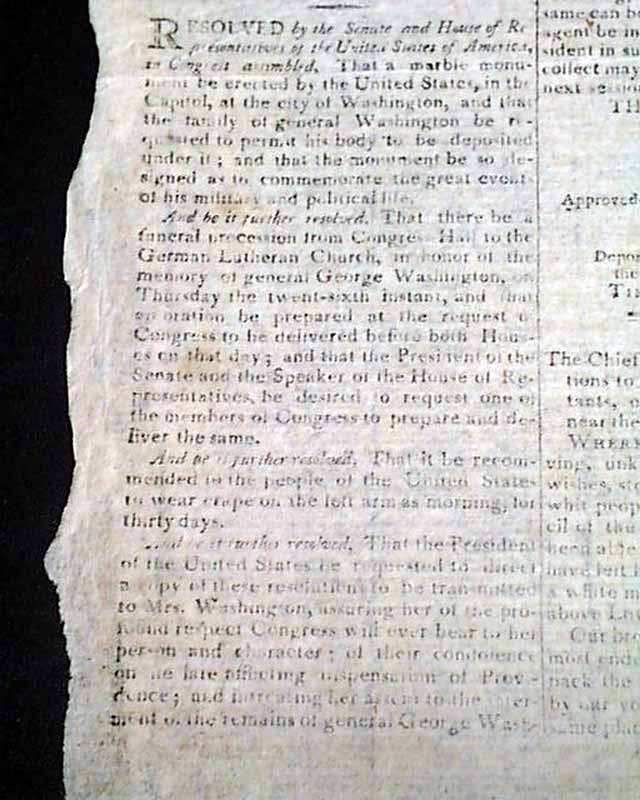 RESOLVED by the Senate and House of Re-
presentatives of the United States of America,
in Congress assembled, That a marble monu-
ment be erected by the United States, in the
Capitol, at the city of Washington, and that
the family of general Washington be re-
quested to permit his body to be deposited
under it; and that the monument be so de-
signed as to commemorate the great events
of his military and political life.
And be it further resolved, That there be a
funeral procession from Congress Hall to the
German Lutheran Church, in honor of the
memory of general George Washington, on
Thursday the twenty-sixth instant, and that
an oration be prepared at the request of
Congress to be delivered before both Hous-
es on that day; and that the President of the
Senate and the Speaker of the House of Re-
presentatives, be desired to request one of
the members of Congress to prepare and de-
liver the same.
And be it further resolved, That it be recom-
mended to the people of the United States
to wear crape on the left arm as morning, for
thirty days.
And be it further resolved, That the President
of the United States be requested to direct
a copy of these resolutions to be transmitted
to Mrs. Washington, assuring her of the pro-
found respect Congress will ever bear to her
person and character; of their condolence
on the late affecting dispensation of Provi-
dence; and intreating her assent to the inter-
ment of the remains of general George Wash-
same can b
agent be in
sident in su
collect may
next session
TH
Approved
Depo
the
TI
The Chief
tions to
tants, o
near the
WHERE
ving, unk
wishes, sto
whit peop
cil of the
been
have left
a white m
above
Our bro
most end
pack the
by our yo
same plac